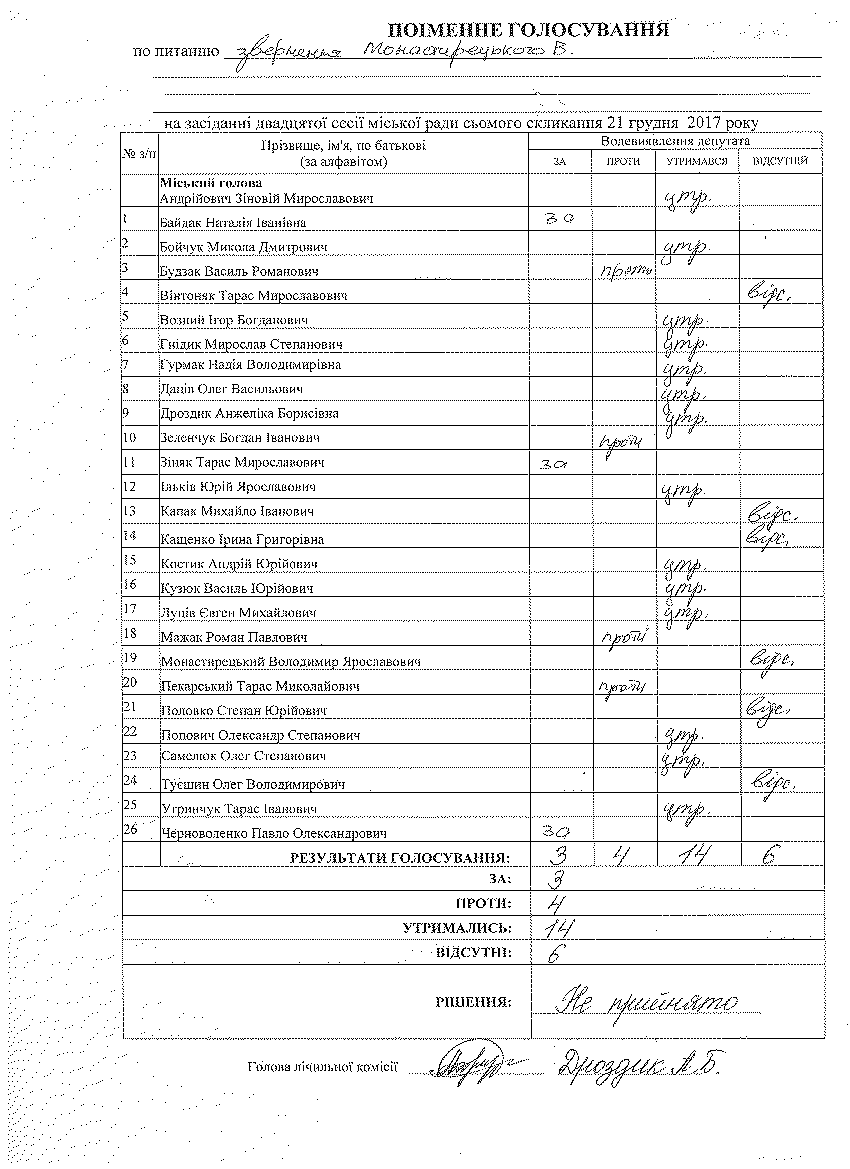 ПОІМЕННЕ ГОЛОСУВАННЯ
по питанню звернення Монастирецького В.
на засіданні двадцятої сесії міської ради сьомого скликання 21 грудня 2017 року
№ з/п Прізвище, ім'я, по батькові (за алфавітом) Волевиявлення депутата
ЗА ПРОТИ УТРИМАВСЯ ВІДСУТНІЙ
Міський голова
Андрійович Зіновій Мирославович утр.
1 Байдак Наталія Іванівна за
2 Бойчук Микола Дмитрович утр.
3 Будзак Василь Романович проти
4 Вінтоняк Тарас Мирославович відс.
5 Возний Ігор Богданович утр.
6 Гнідик Мирослав Степанович утр.
7 Гурмак Надія Володимирівна утр.
8 Даців Олег Васильович утр.
9 Дроздик Анжеліка Борисівна утр.
10 Зеленчук Богдан Іванович проти
11 Зіняк Тарас Мирославович за
12 Ільків Юрій Ярославович утр.
13 Капак Михайло Іванович відс.
14 Кащенко Ірина Григорівна відс.
15 Костик Андрій Юрійович утр.
16 Кузюк Василь Юрійович утр.
17 Луців Євген Михайлович утр.
18 Мажак Роман Павлович проти
19 Монастирецький Володимир Ярославович відс.
20 Пекарський Тарас Миколайович проти
21 Половко Степан Юрійович відс.
22 Попович Олександр Степанович утр.
23 Самелюк Олег Степанович утр.
24 Туєшин Олег Володимирович відс.
25 Угринчук Тарас Іванович утр.
26 Черноволенко Павло Олександрович за
РЕЗУЛЬТАТИ ГОЛОСУВАННЯ: 3 4 14 6
ЗА: 3
ПРОТИ: 4
УТРИМАЛИСЬ: 14
ВІДСУТНІ: 6
РІШЕННЯ: Не прийнято
Голова лічильної комісії Дроздик А.Б.